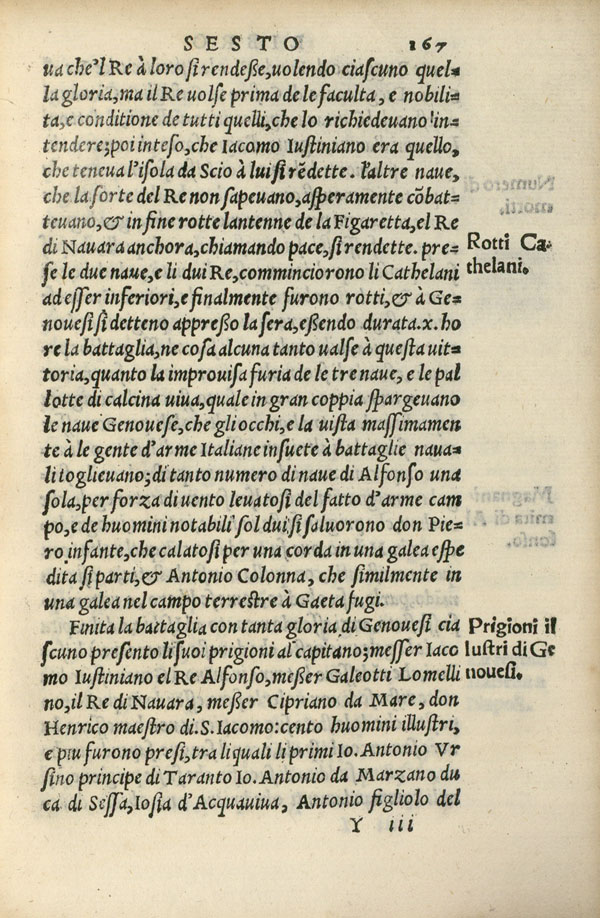 SESTO 167
ua che'l Re à loro si rendeße, uolendo ciascuno quel=
la gloria, ma il Re uolse prima de le faculta, e nobili=
ta, e conditione de tutti quelli, che lo richiedeuano in=
tendere; poi inteso, che Iacomo Iustiniano era quello,
che teneua l'isola da Scio à lui si rẽdette. l'altre naue,
che la sorte del Re non sapeuano, asperamente cõbat=
teuano, & in fine rotte lantenne de la Figaretta, el Re
di Nauara anchora, chiamando pace, si rendette. pre=
se le due naue, e li dui Re, comminciorono li Cathelani
ad esser inferiori, e finalmente furono rotti, & à Ge=
nouesi si detteno appreßo la sera, eßendo durata .x. ho
re la battaglia, ne cosa alcuna tanto ualse à questa uit=
toria, quanto la improuisa furia de le tre naue, e le pal
lotte di calcina uiua, quale in gran coppia spargeuano
le naue Genouese, che gli occhi, e la uista massimamen
te à le gente d'arme Italiane insuete à battaglie naua=
li toglieuano; di tanto numero di naue di Alfonso una
sola, per forza di uento leuatosi del fatto d'arme cam
po, e de huomini notabili sol dui si saluorono don Pie=
ro infante, che calatosi per una corda in una galea espe
dita si parti, & Antonio Colonna, che similmente in
una galea nel campo terrestre à Gaeta fugi.
Finita la battaglia con tanta gloria di Genouesi cia
scuno presento li suoi prigioni al capitano; messer Iaco
mo Iustiniano el Re Alfonso, meßer Galeotti Lomelli
no, il Re di Nauara, meßer Cipriano da Mare, don
Henrico maestro di .S. Iacomo: cento huomini illustri,
e piu furono presi, tra li quali li primi Io. Antonio Vr
sino principe di Taranto Io. Antonio da Marzano du
ca di Sessa, Iosia d'Acquauiua, Antonio figliolo del
Y iii
Rotti Ca=
thelani.
Prigioni il
lustri di Ge
nouesi.